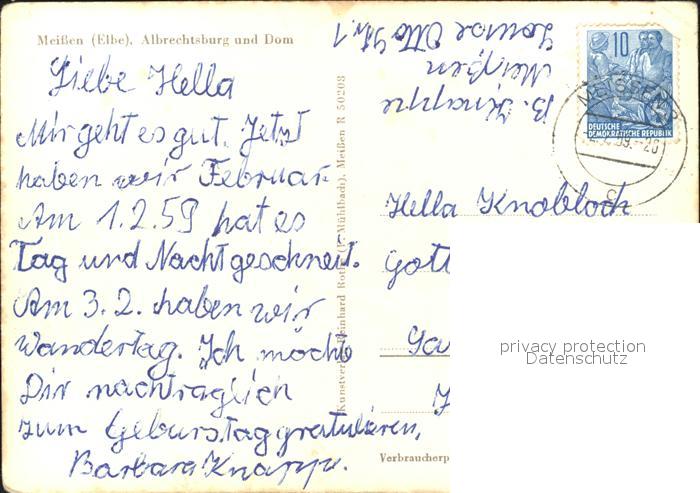 Meißen (Elbe), Albrechtsburg und Dom
Liebe Hella
Mir geht es gut. Jetzt
haben wir Februar
Am 1.2.59 hat es
Tag und Nacht geschneit.
Am 3.2. haben wir
Wandertag. Ich möcht
Dir nachträglich
zum Geburstag gratulieren,
Barbara Knappe.
Kunstverlag Reinhard Rothe (F. Mühlbach), Meißen R 50208
B. Knappe
Meißen
Louise Otto Str. 1
10
DEUTSCHE
DEMOKRATISCHE REPUBLIK
MEISSEN
Hella Knobloch
Gott
privacy protection
Datenschutz
Verbraucherp